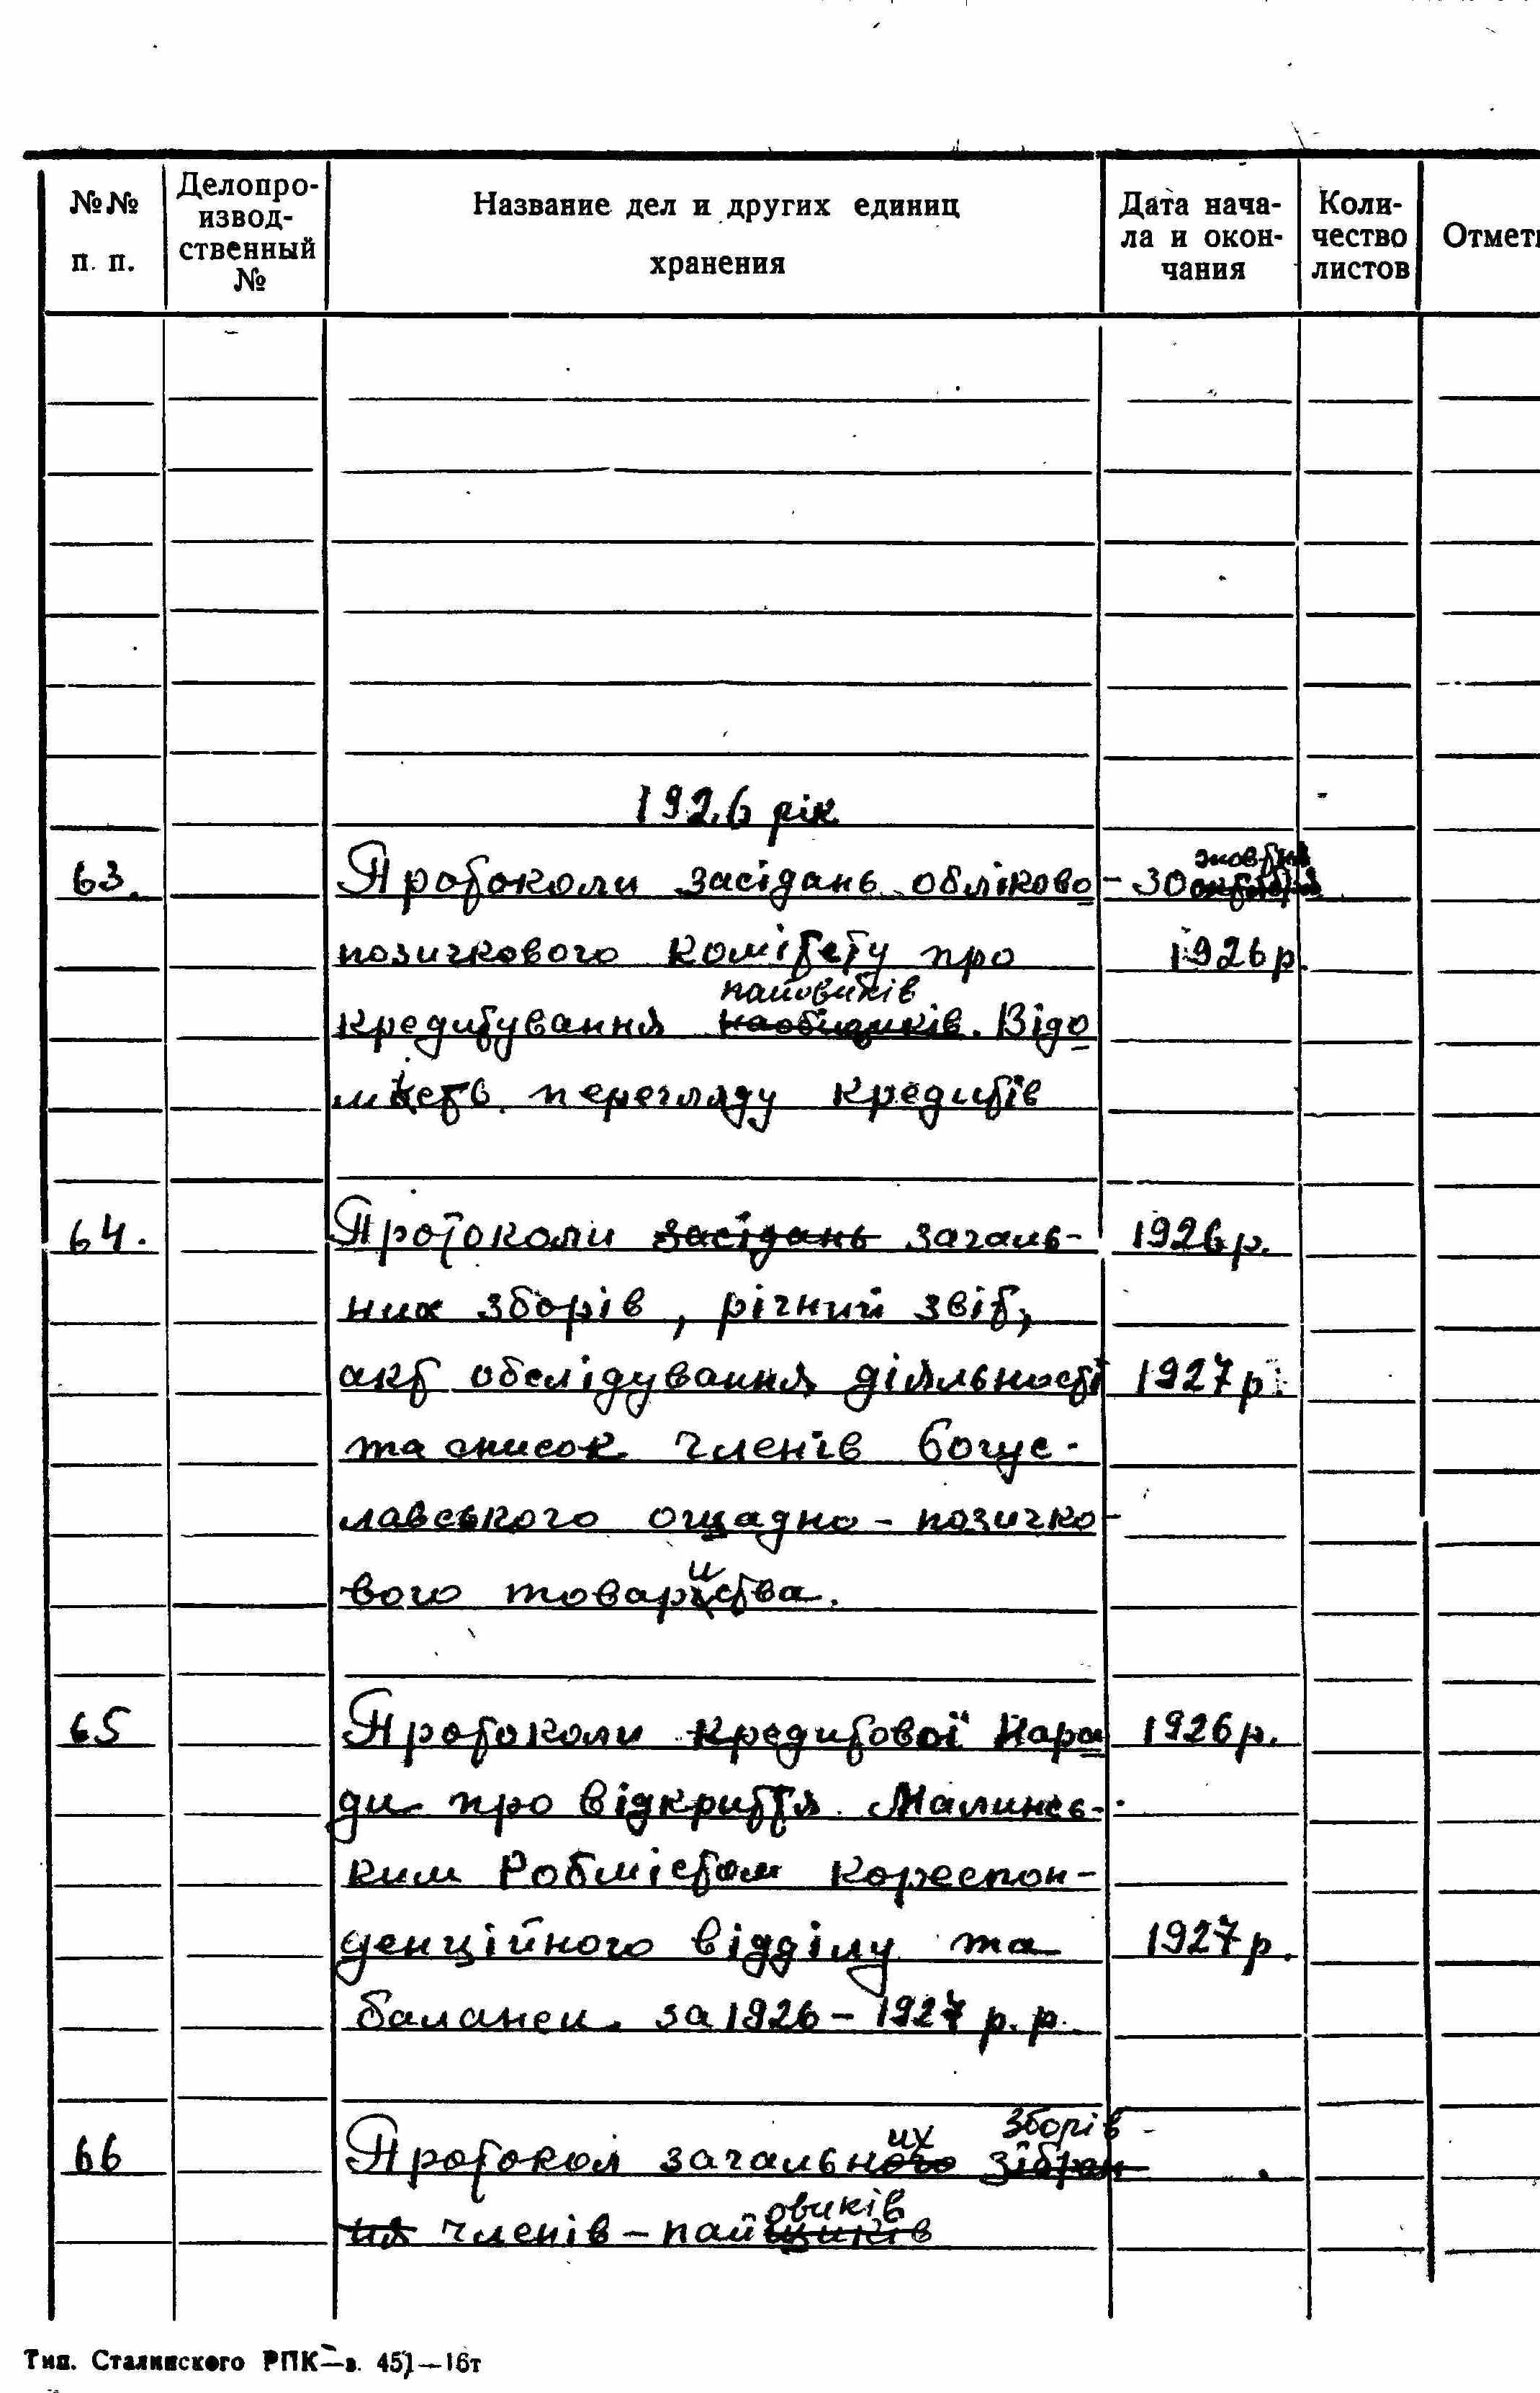 №№ п. п.
Делопро-
извод-
ственный
№
Название дел и других единиц
хранения
Дата нача-
ла и окон-
чания
Коли-
чество
листов
Отмет
1926 рік
63. Протоколи засідань обліково- 30 жовтня
позичкового комітету про 1926 р.
пайовиків
кредитування Відо
мість перегляду кредитів
64. Протоколи засідань загаль- 1926 р.
них зборів, річний звіт,
акт обслідування діяльності 1927 р.
та список членів Богус-
лавського ощадно-позичко-
вого товариства.
65 Протоколи кредитової Нара 1926 р.
ди про відкриття Малинсь-
ким Робмістом кореспон-
денційного відділу та 1927 р.
баланси за 1926-1927 р.р.
их зборів
66 Протокол загального зібран
ня членів-пайщиків
овиків
Тип. Сталинского РПК—з. 451—16т